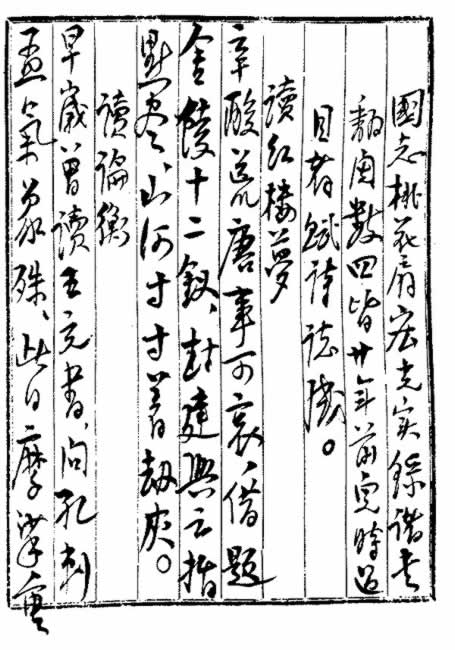 國志桃花扇宏光实錄諸書
翻閱數四皆廿年前兒時過
目者賦詩誌感。
讀紅樓夢
辛酸荒唐事可哀、借題
金陵十二釵、封建興亡指
點尽、山河寸寸着劫灰。
讀論衡
早歲曾讀王充書、问孔刺
孟氣象殊、此日摩挲